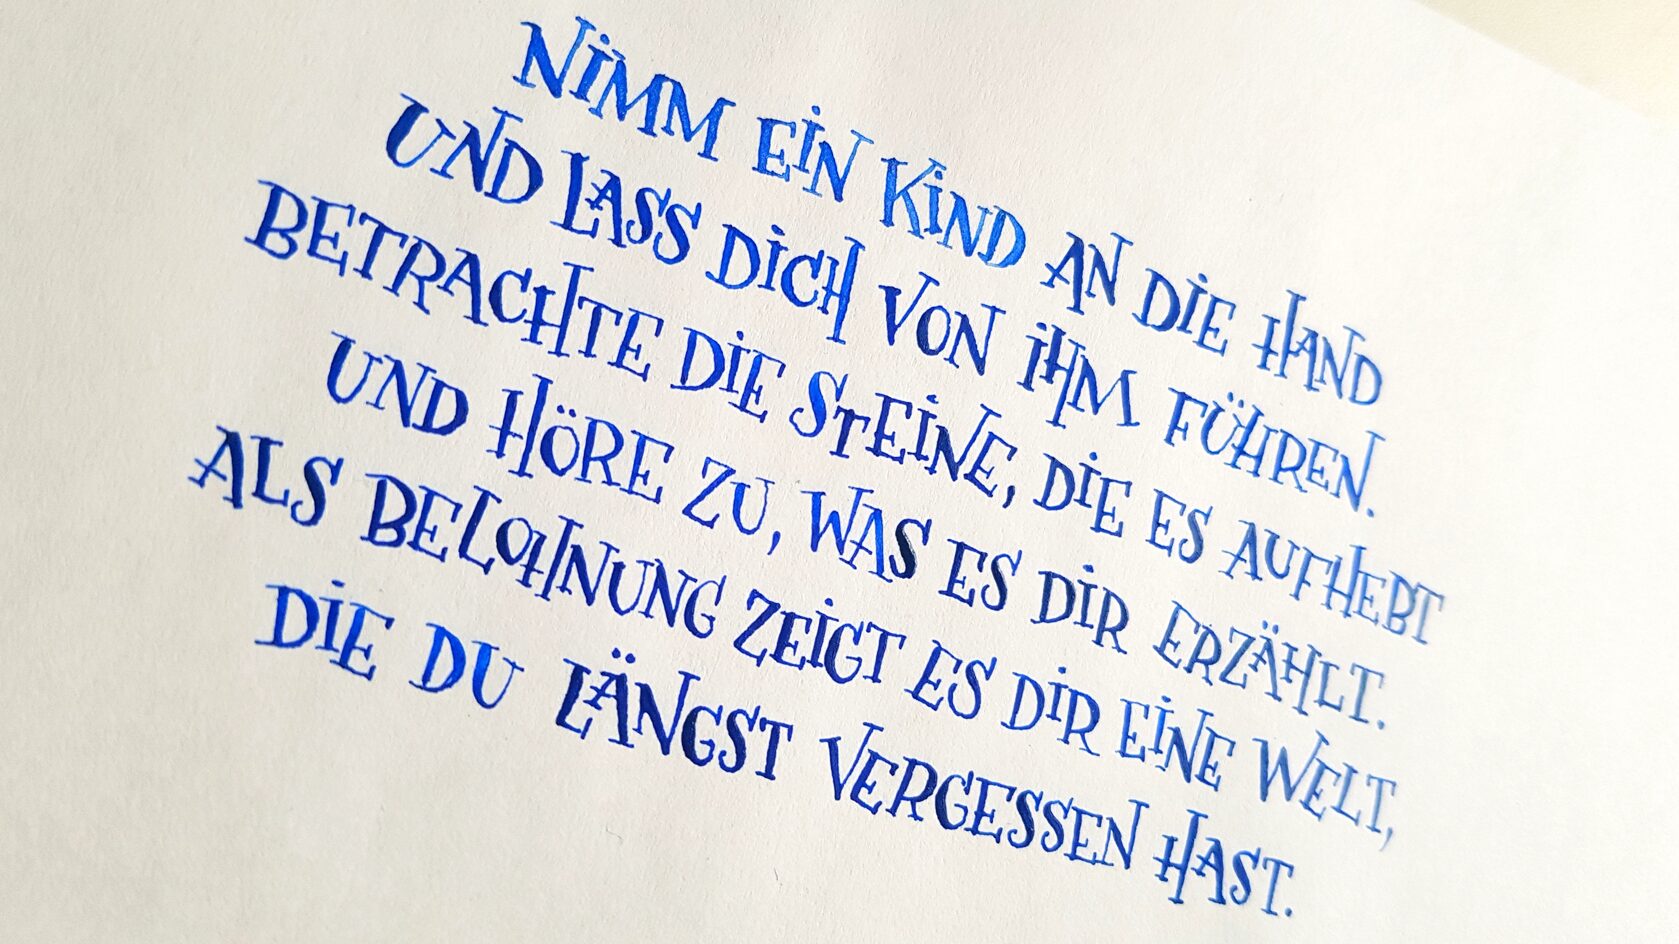 NIMM EIN KIND AN DIE HAND
UND LASS DICH VON IHM FÜHREN.
BETRACHTE DIE STEINE, DIE ES AUFHEBT
UND HÖRE ZU, WAS ES DIR ERZÄHLT.
ALS BELOHNUNG ZEIGT ES DIR EINE WELT,
DIE DU LÄNGST VERGESSEN HAST.